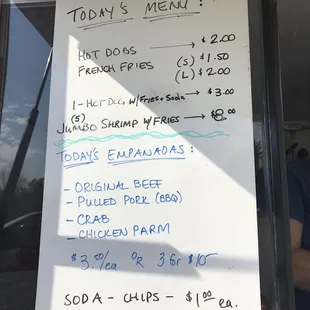 TODAY'S MENU:
HOT DOGS → $2.00
FRENCH FRIES (S) $1.50
(L) $2.00
1-HOT DOG W/FRIES+SODA → $3.00
(5) JUMBO SHRIMP W/FRIES → $8.00
TODAY'S EMPANADAS:
- ORIGINAL BEEF
- PULLED PORK (BBQ)
- CRAB
- CHICKEN PARM
$3.50/ea OR 3 for $10
SODA - CHIPS - $1.00 ea.